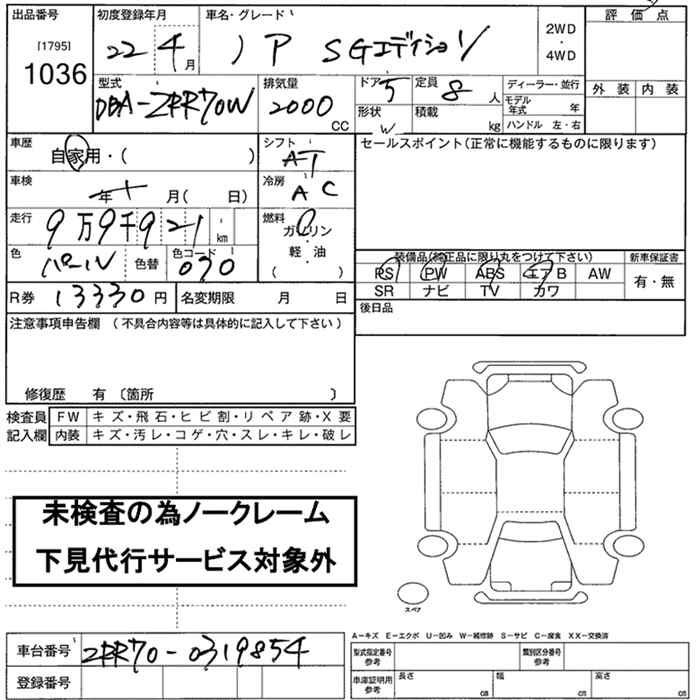 出品番号 初度登録年月 車名・グレード 評価点
[1795]
1036
22 4月 ノア SGエディション
2WD
・
4WD
外装 内装
型式 排気量 ドア 定員 ディーラー・並行
DBA-ZRR70W 2000 CC 5 8 人
モデル年式 年
形状 W 積載 kg ハンドル 左・右
車歴 自家用・( ) シフト AT
セールスポイント(正常に機能するものに限ります)
車検 年 月( 日) 冷房 AC
走行 9万9千921 km 燃料 ガソリン
軽・油
( )
色 パール 色替 色コード 070
装備品(純正品に限り丸をつけて下さい) 新車保証書
PS PW ABS エアB AW 有・無
SR ナビ TV カワ
R券 13330円 名変期限 月 日
後日品
注意事項申告欄 (不具合内容等は具体的に記入して下さい)
修復歴 有 〔箇所 〕
検査員 FW キズ・飛石・ヒビ割・リペア跡・X要
記入欄 内装 キズ・汚レ・コゲ・穴・スレ・キレ・破レ
未検査の為ノークレーム
下見代行サービス対象外
スペア
A-キズ E-エクボ U-凹み W-補修跡 S-サビ C-腐食 XX-交換済
車台番号 ZRR70-0319854
型式指定番号 参考 類別区分番号 参考
登録番号
車庫証明用 参考 長さ cm 幅 cm 高さ cm